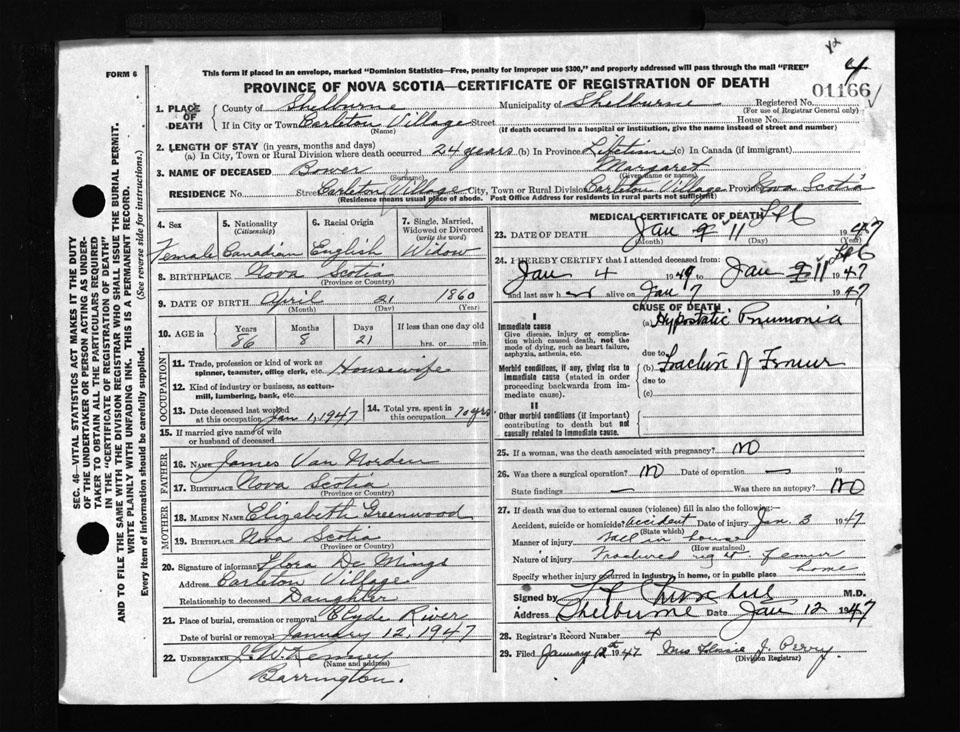 4
FORM 6
This form if placed in an envelope, marked "Dominion Statistics—Free, penalty for improper use $300," and properly addressed will pass through the mail "FREE"
PROVINCE OF NOVA SCOTIA—CERTIFICATE OF REGISTRATION OF DEATH
01166
1. PLACE OF DEATH
County of Shelburne Municipality of Shelburne Registered No.
(For use of Registrar General only)
If in City or Town Carleton Village Street House No.
(Name) (If death occurred in a hospital or institution, give the name instead of street and number)
2. LENGTH OF STAY (in years, months and days)
(a) In City, Town or Rural Division where death occurred 24 years (b) In Province Lifetime (c) In Canada (if immigrant)
3. NAME OF DECEASED Bower Margaret
(Surname) (Given name or names)
RESIDENCE No. Street Carleton Village City, Town or Rural Division Carleton Village Province Nova Scotia
(Residence means usual place of abode. Post Office Address for residents in rural parts not sufficient)
4. Sex 5. Nationality 6. Racial Origin 7. Single, Married, Widowed or Divorced
(Citizenship) (write the word)
Female Canadian English Widow
8. BIRTHPLACE Nova Scotia
(Province or Country)
9. DATE OF BIRTH April 21 1860
(Month) (Day) (Year)
10. AGE in Years Months Days If less than one day old
86 8 21 hrs. or min.
OCCUPATION
11. Trade, profession or kind of work as
spinner, teamster, office clerk, etc. Housewife
12. Kind of industry or business, as cotton-
mill, lumbering, bank, etc.
13. Date deceased last worked
at this occupation Jan 1, 1947
14. Total yrs. spent in
this occupation 70 yrs
15. If married give name of wife
or husband of deceased
FATHER
16. NAME James Van Norden
17. BIRTHPLACE Nova Scotia
(Province or Country)
MOTHER
18. MAIDEN NAME Elizabeth Greenwood
19. BIRTHPLACE Nova Scotia
(Province or Country)
20. Signature of informant Flora De Mings
Address Carleton Village
Relationship to deceased Daughter
21. Place of burial, cremation or removal Clyde River
Date of burial or removal January 12, 1947
22. UNDERTAKER J. W. Kenney
(Name and address)
Barrington.
MEDICAL CERTIFICATE OF DEATH
23. DATE OF DEATH Jan 9 11 1947
(Month) (Day) (Year)
24. I HEREBY CERTIFY that I attended deceased from:
Jan 4 1947 to Jan 9 11 1947
and last saw her alive on Jan 7 1947
CAUSE OF DEATH
I
Immediate cause
Give disease, injury or complica-
tion which caused death, not the
mode of dying, such as heart failure,
asphyxia, asthenia, etc.
(a) Hypostatic Pneumonia
due to
Morbid conditions, if any, giving rise to
immediate cause (stated in order
proceeding backwards from im-
mediate cause)
(b) Fracture of Femur
due to
(c)
II
Other morbid conditions (if important)
contributing to death but not
causally related to immediate cause.
25. If a woman, was the death associated with pregnancy? NO
26. Was there a surgical operation? NO Date of operation — 19
State findings — Was there an autopsy? NO
27. If death was due to external causes (violence) fill in also the following:
Accident, suicide or homicide? accident Date of injury Jan. 3 1947
(State which)
Manner of injury Fall in house
(How sustained)
Nature of injury Fractured right femur
Specify whether injury occurred in industry, in home, or in public place home
Signed by M.D.
Address Shelburne Date Jan 12 1947
28. Registrar's Record Number 4
29. Filed January 12th 1947 Mrs Flossie J. Perry
(Division Registrar)
SEC. 46—VITAL STATISTICS ACT MAKES IT THE DUTY
OF THE UNDERTAKER OR PERSON ACTING AS UNDER-
TAKER TO OBTAIN ALL THE PARTICULARS REQUIRED
IN THE "CERTIFICATE OF REGISTRATION OF DEATH"
AND TO FILE THE SAME WITH THE DIVISION REGISTRAR WHO SHALL ISSUE THE BURIAL PERMIT.
WRITE PLAINLY WITH UNFADING INK. THIS IS A PERMANENT RECORD.
Every item of information should be carefully supplied. (See reverse side for instructions.)